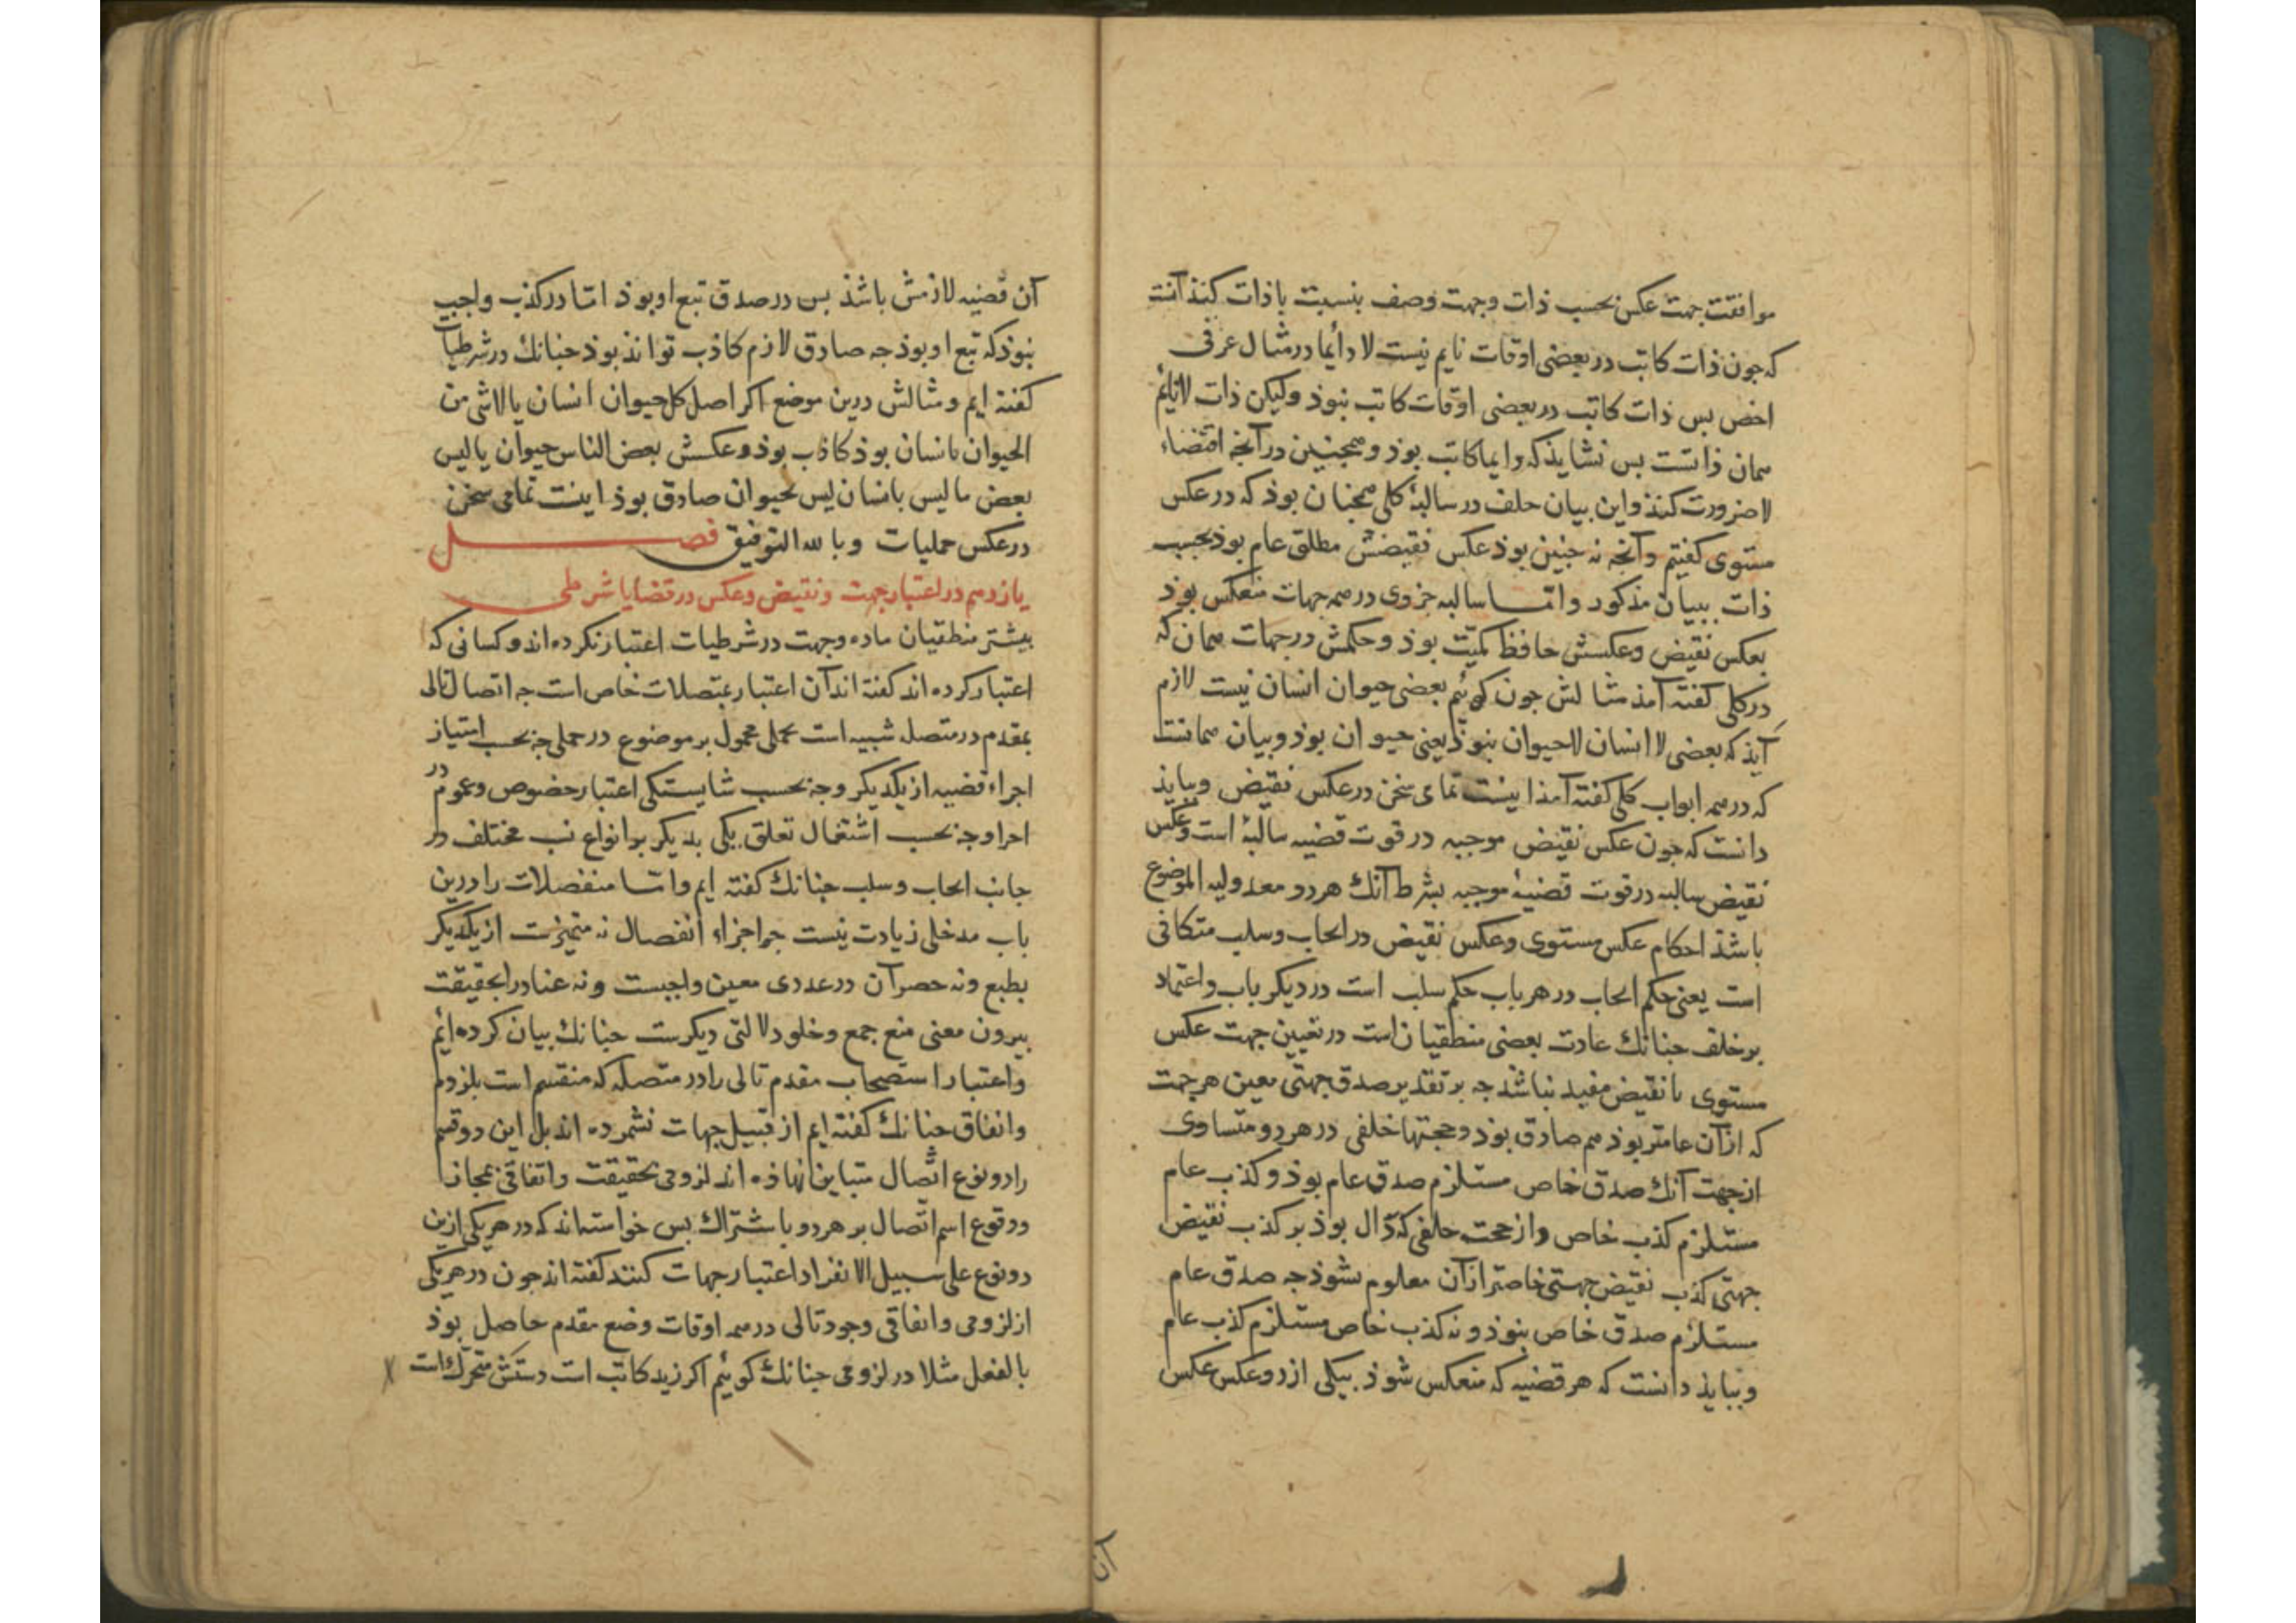 موافقت جهت عکس بحسب ذات وجهت وصف بنسبت باذات کنذ آنست
که جون ذات کاتب در بعضی اوقات نایم نیست لا دایما در مثال عرفی
اخص بس ذات کاتب در بعضی اوقات کاتب نبوذ ولیکن ذات لانایم
همان ذاتست بس نشایذ که دایما کاتب بوذ وهمجنین در آنجه اقتضاء
لاضرورت کنذ واین بیان خلف در سالبۀ کلی همجنان بوذ که در عکس
مستوی کفتیم وآنجه نه جنین بوذ عکس نقیضش مطلق عام بوذ بحسب
ذات ببیان مذکور واما سالبه جزوی در همه جهات منعکس بوذ
بعکس نقیض وعکسش حافظ کمیّت بوذ وحکمش در جهات همان که
در کلی کفته آمذ مثالش جون کوئیم بعضی حیوان انسان نیست لازم
آیذ که بعضی لا انسان لاحیوان نبوذ یعنی حیوان بوذ وبیان همانست
که در همه ابواب کلی کفته آمذ اینست تمامی سخن در عکس نقیض وببایذ
دانست که جون عکس نقیض موجبه در قوت قضیه سالبۀ است وعکس
نقیض سالبه در قوت قضیۀ موجبه بشرط آنک هر دو معدولیه الموضوع
باشذ احکام عکس مستوی وعکس نقیض در ایجاب وسلب متکافی
است یعنی حکم ایجاب در هر باب حکم سلب است در دیکر باب واعتماد
بر خلف جنانک عادت بعضی منطقیان است در تعیین جهت عکس
مستوی یا نقیض مفید نباشد جه بر تقدیر صدق جهتی معین هر جهت
که از آن عامتر بوذ هم صادق بوذ وحجتها خلفی در هر دو متساوی
از جهت آنک صدق خاص مستلزم صدق عام بوذ وکذب عام
مستلزم کذب خاص واز حجت خلفی که دّال بوذ بر کذب نقیض
جهتی کذب نقیض جهتی خاصتر از آن معلوم نشوذ جه صدق عام
مستلزم صدق خاص نبوذ ونه کذب خاص مستلزم کذب عام
وببایذ دانست که هر قضیه که منعکس شوذ بیکی از دو عکس عکس
آن قضیه لازمش باشذ بس در صدق تبع او بوذ اما در کذب واجب
نبوذ که تبع او بوذ جه صادق لازم کاذب تواند بوذ جنانک در شرطیات
کفته ایم ومثالش درین موضع اکر اصل کل حیوان انسان یا لاشی من
الحیوان بانسان بوذ کاذب بوذ وعکسش بعض الناس حیوان یا لیس
بعض ما لیس بانسان لیس بحیوان صادق بوذ اینست تمامی سخن
در عکس حملیات وبالله التوفیق فصل
یازدهم در اعتبار جهت ونقیض وعکس در قضایا شرطی
بیشتر منطقیان ماده وجهت در شرطیات اعتبار نکرده اند وکسانی که
اعتبار کرده اند کفته اند آن اعتبار بمتصلات خاص است جه اتصال تالی
بمقدم در متصل شبیه است بحملی محمول بر موضوع در حملی جه بحسب امتیاز
اجراء قضیه از یکدیکر وجه بحسب شایستکی اعتبار خصوص وعموم در
اجرا وجه بحسب اشتمال تعلق یکی بدیکر بر انواع نسب مختلف در
جانب ایجاب وسلب جنانک کفته ایم واما منفصلات را درین
باب مدخلی زیادت نیست جه اجزاء انفصال نه متمیزست از یکدیکر
بطبع ونه حصر آن در عددی معین واجبست ونه عناد را بحقیقت
بیرون معنی منع جمع وخلو دلالتی دیکرست جنانک بیان کرده ائیم
واعتبار استصحاب مقدم تالی را در متصله که منقسم است بلزوم
واتفاق جنانک کفته ایم از قبیل جهات نشمرده اند بل این دو قسم
را دو نوع اتّصال متباین نهاذه اند لزومی بحقیقت واتفاقی بمجاز
ووقوع اسم اتّصال بر هر دو باشتراک بس خواسته اند که در هر یکی ازین
دو نوع علی سبیل الانفراد اعتبار جهات کنند کفته اند جون در هر یکی
از لزومی واتفاقی وجود تالی در همه اوقات وضع مقدم حاصل بوذ
بالفعل مثلا در لزومی جنانک کوئیم اکر زید کاتب است دستش متحرّک است